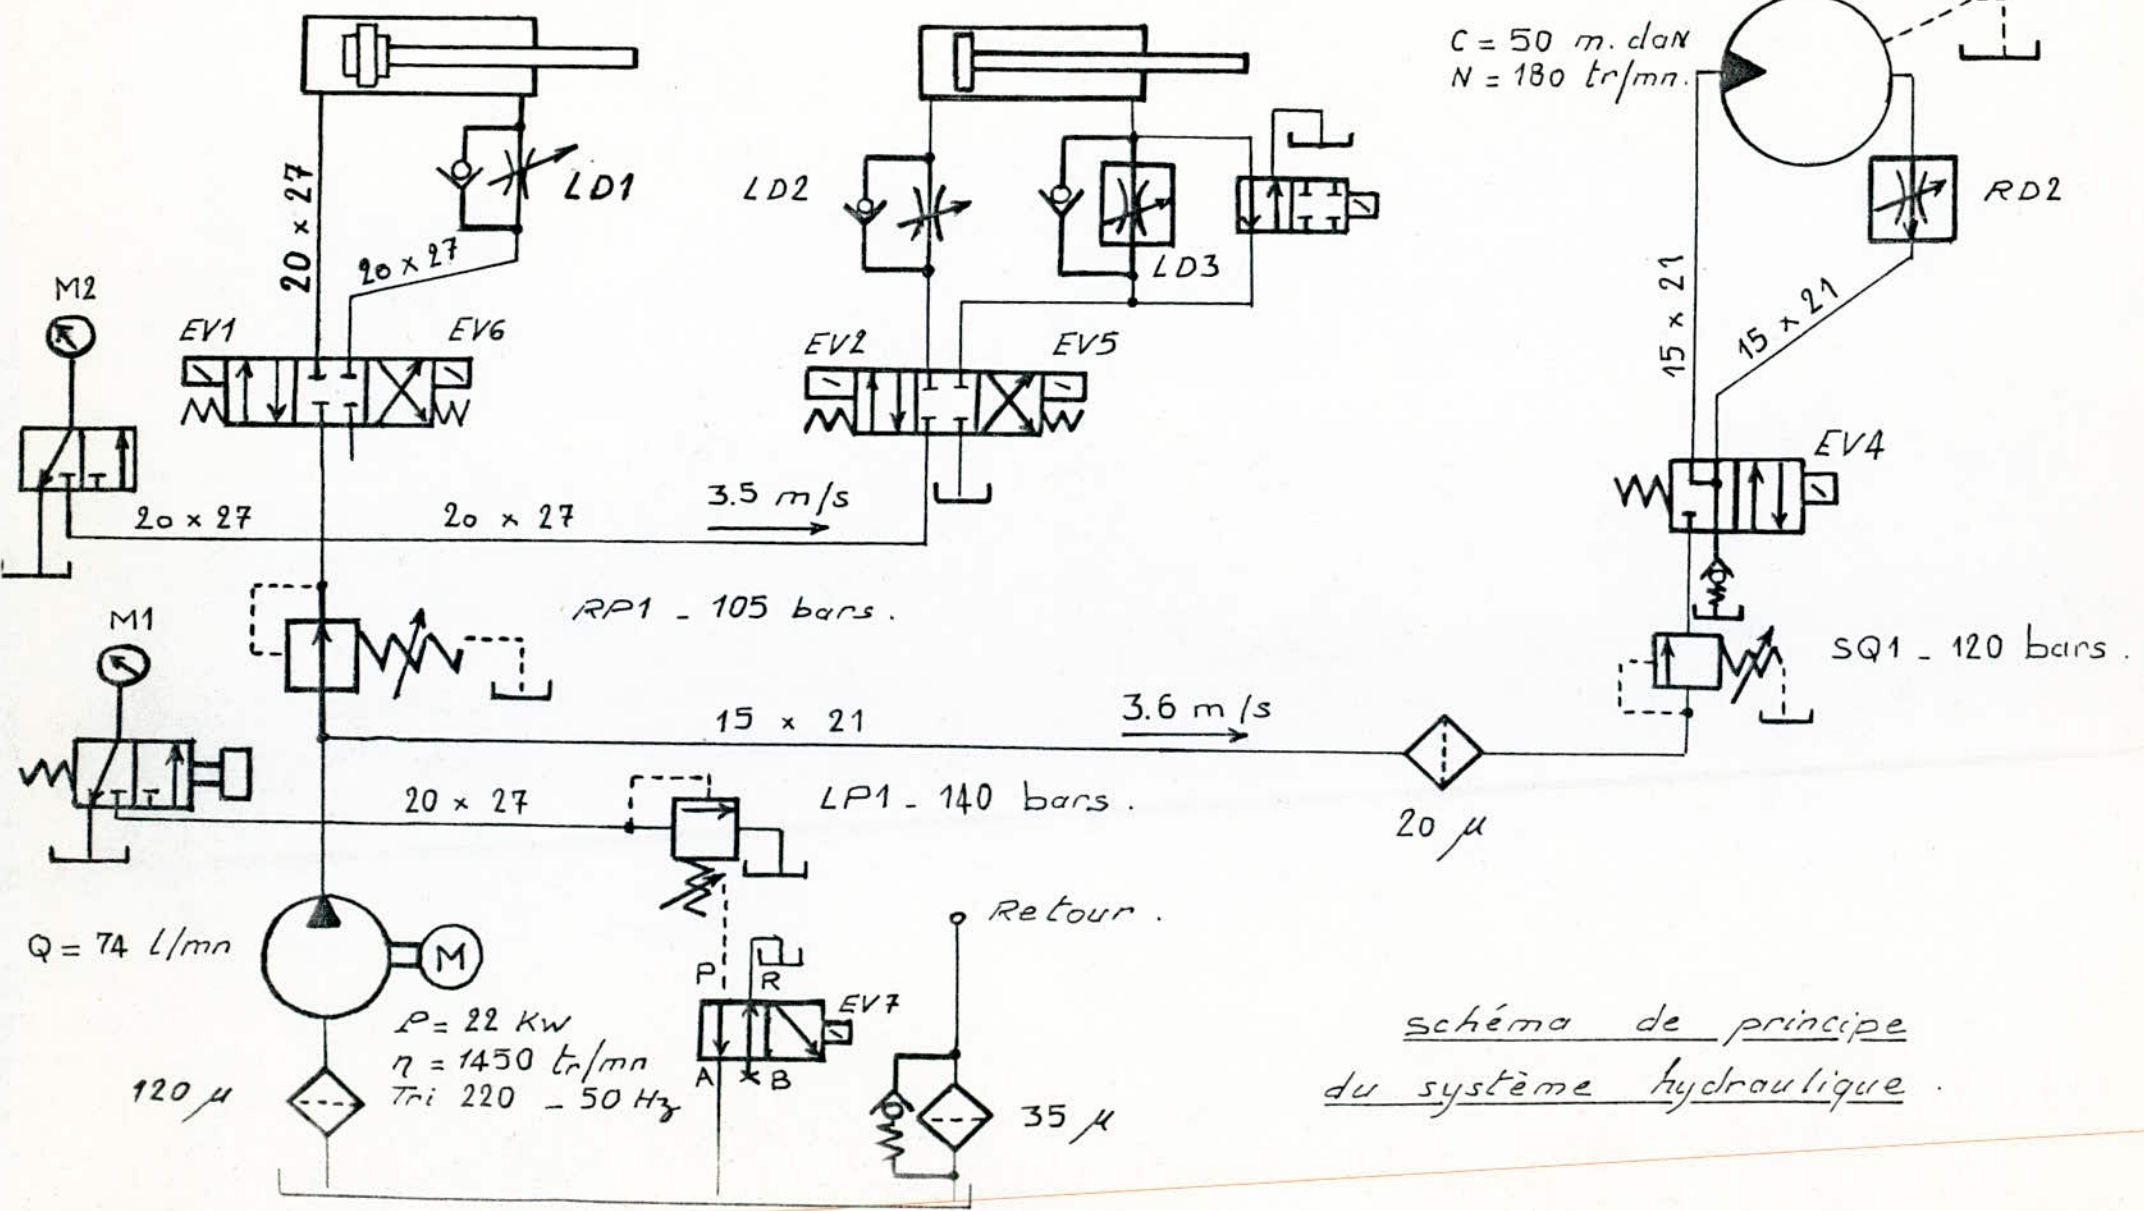 C = 50 m.daN
N = 180 tr/mn.
20 x 27
LD1
20 x 27
LD2
LD3
RD2
15 x 21
15 x 21
M2
EV1
EV6
EV2
EV5
EV4
20 x 27
20 x 27
3.5 m/s
M1
RP1 _ 105 bars.
SQ1 _ 120 bars.
15 x 21
3.6 m/s
20 x 27
LP1 _ 140 bars.
20 µ
Q = 74 l/mn
M
P = 22 Kw
n = 1450 tr/mn
Tri 220 _ 50 Hz
120 µ
P
R
EV7
A
B
Retour.
35 µ
schéma de principe
du système hydraulique.